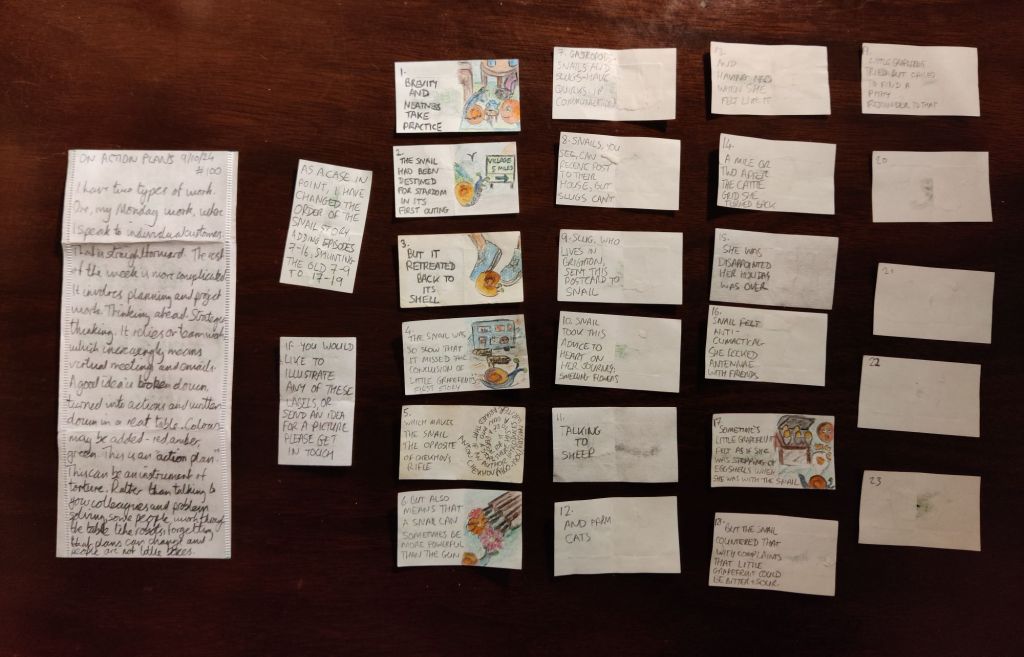 ON ACTION PLANS 9/10/24
#100
I have two types of work.
One, my Monday work, where
I speak to individual customers.
That is straightforward. The rest
of the week is more complicated.
It involves planning and project
work. Thinking ahead. Strategic
thinking. It relies on teamwork
which increasingly means
virtual meetings and emails.
A good idea is broken down,
turned into actions and written
down in a neat table. Colours
may be added - red amber,
green. This is an "action plan".
This can be an instrument of
torture. Rather than talking to
your colleagues and problem
solving some people work through
the table like robots, forgetting
that plans can change and
people are not
AS A CASE IN
POINT, I HAVE
CHANGED THE
ORDER OF THE
SNAIL STORY
ADDING EPISODES
7-16, SHUNTING
THE OLD 7-9
TO 17-19
IF YOU WOULD
LIKE TO
ILLUSTRATE
ANY OF THESE
LABELS, OR
SEND AN IDEA
FOR A PICTURE
PLEASE GET
IN TOUCH
1.
BREVITY
AND
NEATNESS
TAKE
PRACTICE
2.
THE SNAIL
HAD BEEN
DESTINED
FOR STARDOM
IN ITS
FIRST OUTING
VILLAGE
5 MILES
3.
BUT IT
RETREATED
BACK TO
ITS
SHELL
4.
THE SNAIL WAS
SO SLOW THAT
IT MISSED THE
CONCLUSION OF
LITTLE GRAPEFRUIT'S
FIRST STORY
5.
WHICH MAKES
THE SNAIL
THE OPPOSITE
OF CHEKHOV'S
RIFLE
6. BUT ALSO
MEANS THAT
A SNAIL CAN
SOMETIMES BE
MORE POWERFUL
THAN THE GUN
7. GASTROPODS -
SNAILS AND
SLUGS - HAVE
QUIRKS IN
COMMUNICATION
8. SNAILS, YOU
SEE, CAN
RECEIVE POST
TO THEIR
HOUSE, BUT
SLUGS CAN'T
9. SLUG, WHO
LIVES IN
BRIGHTON,
SENT THIS
POSTCARD TO
SNAIL
10. SNAIL
TOOK THIS
ADVICE TO
HEART ON
HER JOURNEY:
SMELLING FLOWERS
11.
TALKING
TO
SHEEP
12.
AND FARM
CATS
13.
AND
HAVING NAPS
WHEN SHE
FELT LIKE IT
14.
A MILE OR
TWO AFTER
THE CATTLE
GRID SHE
TURNED BACK
15.
SHE WAS
DISAPPOINTED
HER HOLIDAY
WAS OVER
16.
SNAIL FELT
ANTI-
CLIMACTICAL
SHE LOCKED
ANTENNAE
WITH FRIENDS
17.
SOMETIMES
LITTLE GRAPEFRUIT
FELT AS IF SHE
WAS STEPPING ON
EGGSHELLS WHEN
SHE WAS WITH THE SNAIL
18.
BUT THE SNAIL
COUNTERED THAT
WITH COMPLAINTS
THAT LITTLE
GRAPEFRUIT COULD
BE BITTER + SOUR
19.
LITTLE GRAPEFRUIT
TRIED BUT FAILED
TO FIND A
PITHY
REJOINDER TO THAT
20
21
22
23